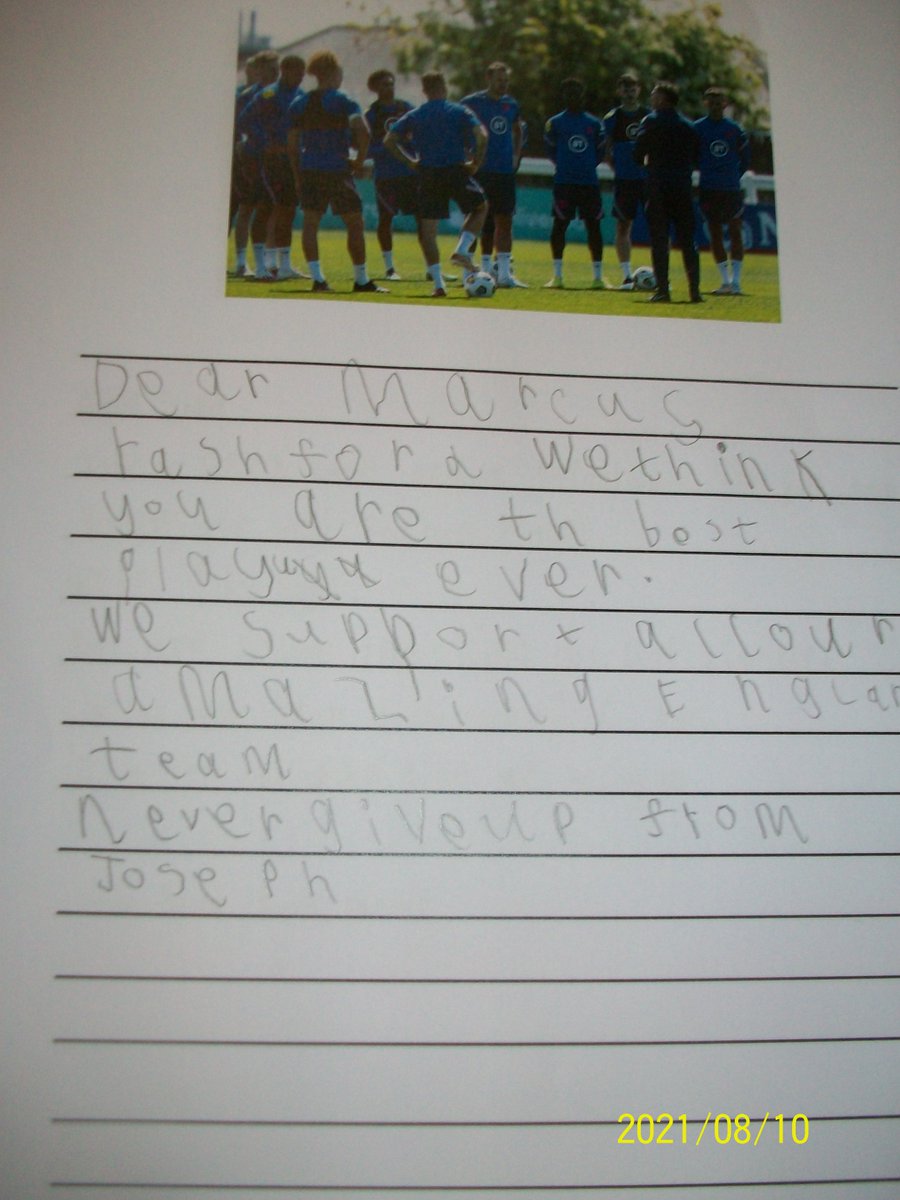 BT
BT
BT
N
Dear Marcus
rashford wethink
you are th best
ever.
We support allour
amazing Englan
team
Nevergiveup from
Joseph
2021/08/10